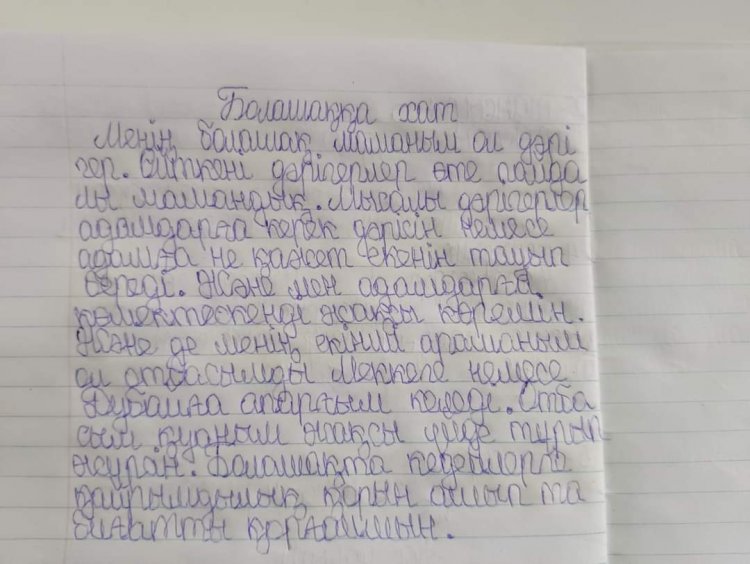 Болашаққа хат
Менің болашақ маманым ол дәрі
гер. Өйткені дәрігерлер өте пайда
лы мамандық. Мысалы дәрігерлер
адамдарға керек дәрісін немесе
адамға не қажет екенін тауып
береді. Және мен адамдарға
көмектескенді жақсы көремін.
Және де менің екінші арманым
ол отбасымды Меккеге немесе
Дубайға апарғым келеді. Отба
сым қуаным жақсы үйде тұрып
жүрін. Болашақта кедейлерге
қайрымдылық қорын ашып та
биғатты қорғаймын.